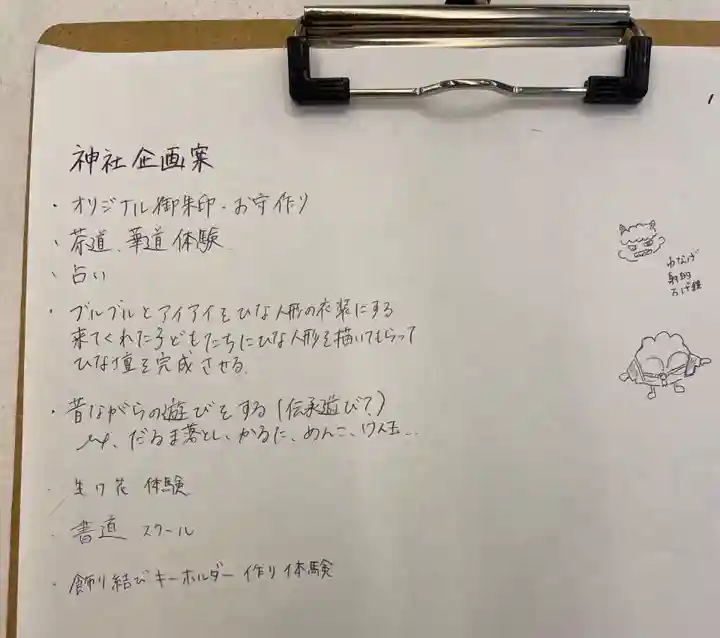 神社企画案
・オリジナル御朱印・お守作り
・茶道、華道体験
・占い
・ブルブルとアイアイをひな人形の衣装にする
来てくれた子どもたちにひな人形を描いてもらって
ひな壇を完成させる。
・昔ながらの遊びをする(伝承遊び?)
だるま落とし、かるた、めんこ、けん玉…
・生け花 体験
・書道 スクール
・飾り結びキーホルダー作り体験
わなげ
射的